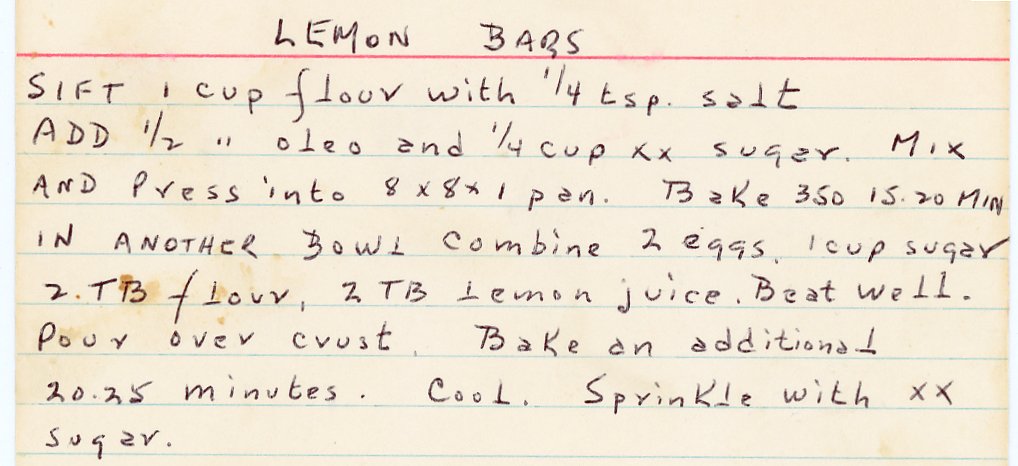 LEMON BARS
SIFT 1 cup flour with 1/4 tsp. salt
ADD 1/2 " oleo and 1/4 cup xx sugar. Mix
AND Press into 8x8x1 pan. Bake 350 15.20 MIN
IN ANOTHER Bowl combine 2 eggs, 1 cup sugar
2.TB flour, 2 TB lemon juice. Beat well.
Pour over crust. Bake an additional
20.25 minutes. Cool. Sprinkle with xx
sugar.